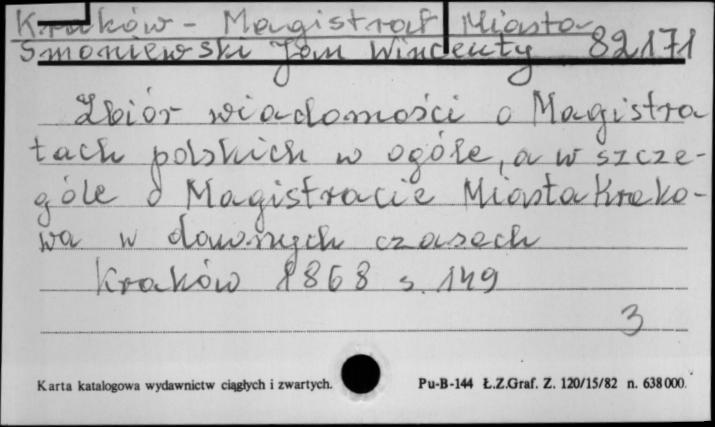 Kraków - Magistrat Miasta
Smoniewski Jan Wincenty 82171
Zbiór wiadomości o Magistra
tach polskich w ogóle, a w szcze-
góle o Magistracie Miasta Krako-
wa w dawnych czasach
Kraków 1868 s. 149
3
Karta katalogowa wydawnictw ciągłych i zwartych.
Pu-B-144 Ł.Z.Graf. Z. 120/15/82 n. 638000.